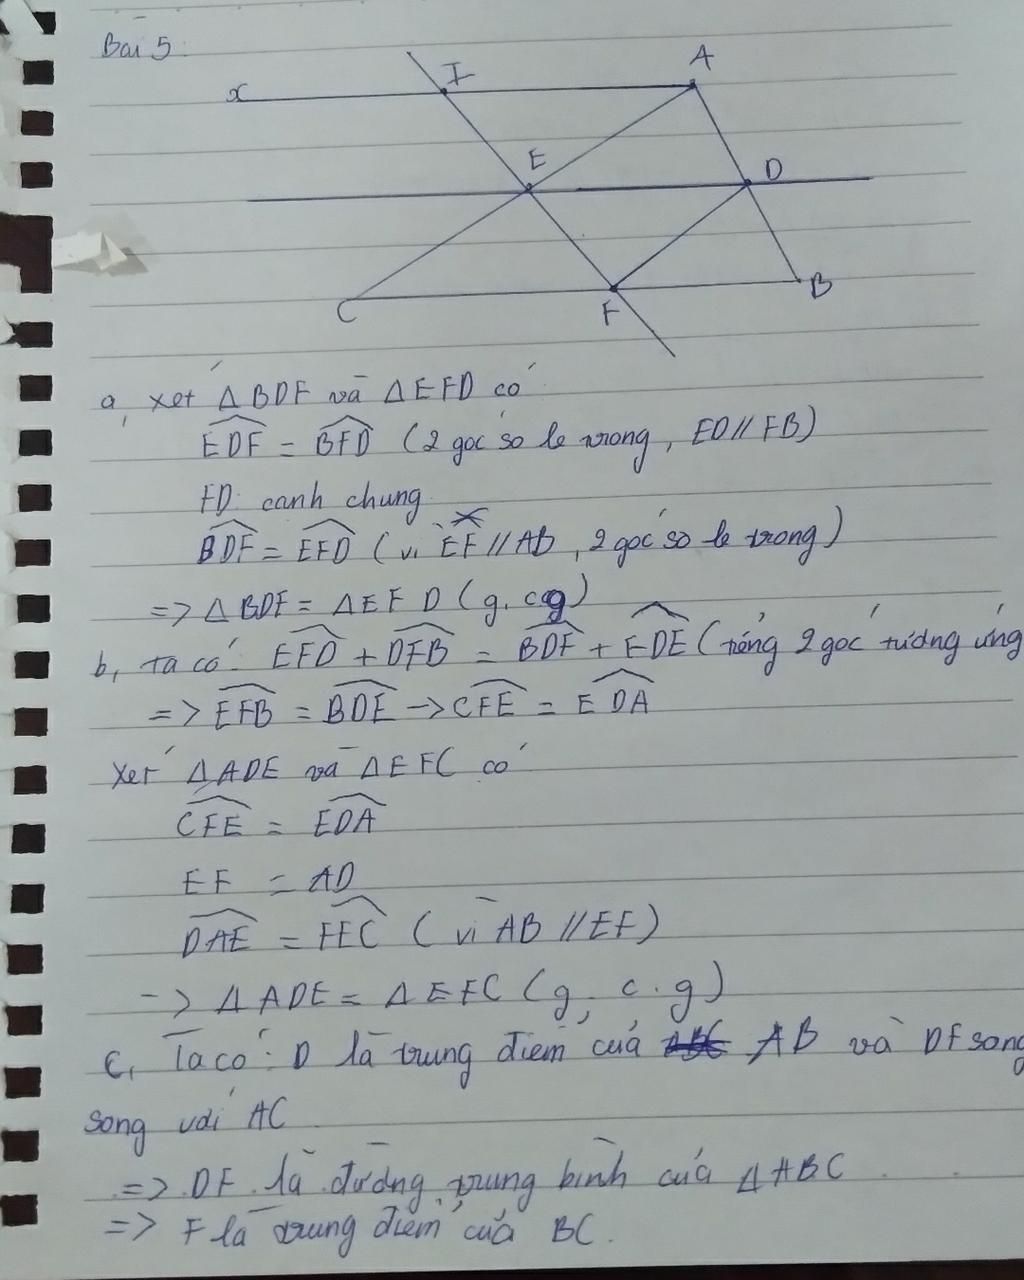 Bài 5:
x I A
E D
C F B
a, xét △BDF và △EFD có
EDF = BFD (2 góc so le trong, ED // FB)
FD: canh chung
BDF = EFD (vì EF // AB, 2 góc so le trong)
=> △BDF = △EFD (g.c.g)
b, ta có: EFD + DFB = BDF + FDE (tổng 2 góc tương ứng
=> EFB = BDE -> CFE = EDA
xét △ADE và △EFC có
CFE = EDA
EF = AD
DAE = FEC (vì AB // EF)
-> △ADE = △EFC (g, c.g)
c, Ta có: D là trung điểm của AB và DF song
song với AC
=> DF là đường trung bình của △ABC
=> F là trung điểm của BC.